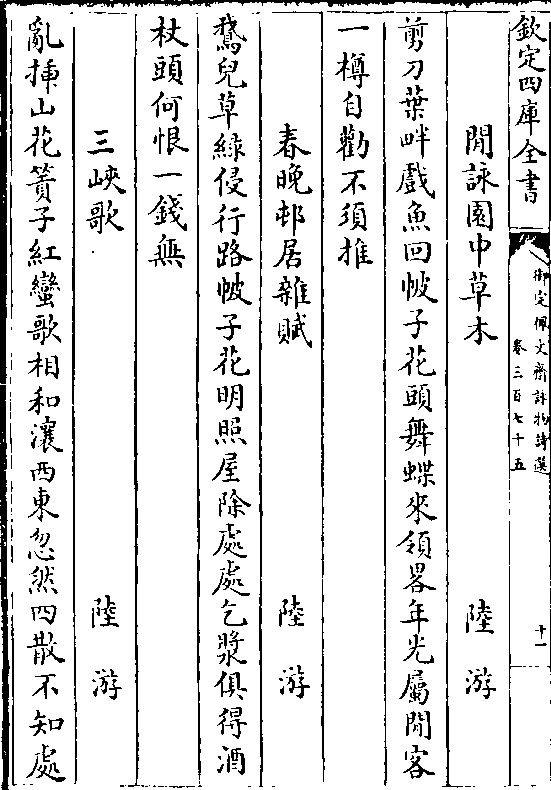 欽定四庫全書
御定佩文齋詠物詩選
卷三百七十五
十一
閒詠園中草木 陸游
剪刀葉畔戲魚回帔子花頭舞蝶來領畧年光屬閒客
一樽自勸不須推
春晚邨居雜賦 陸游
鵞兒草綠侵行路帔子花明照屋除處處乞漿俱得酒
杖頭何恨一錢無
三峽歌 陸游
亂揷山花簀子紅蠻歌相和瀼西東忽然四散不知處